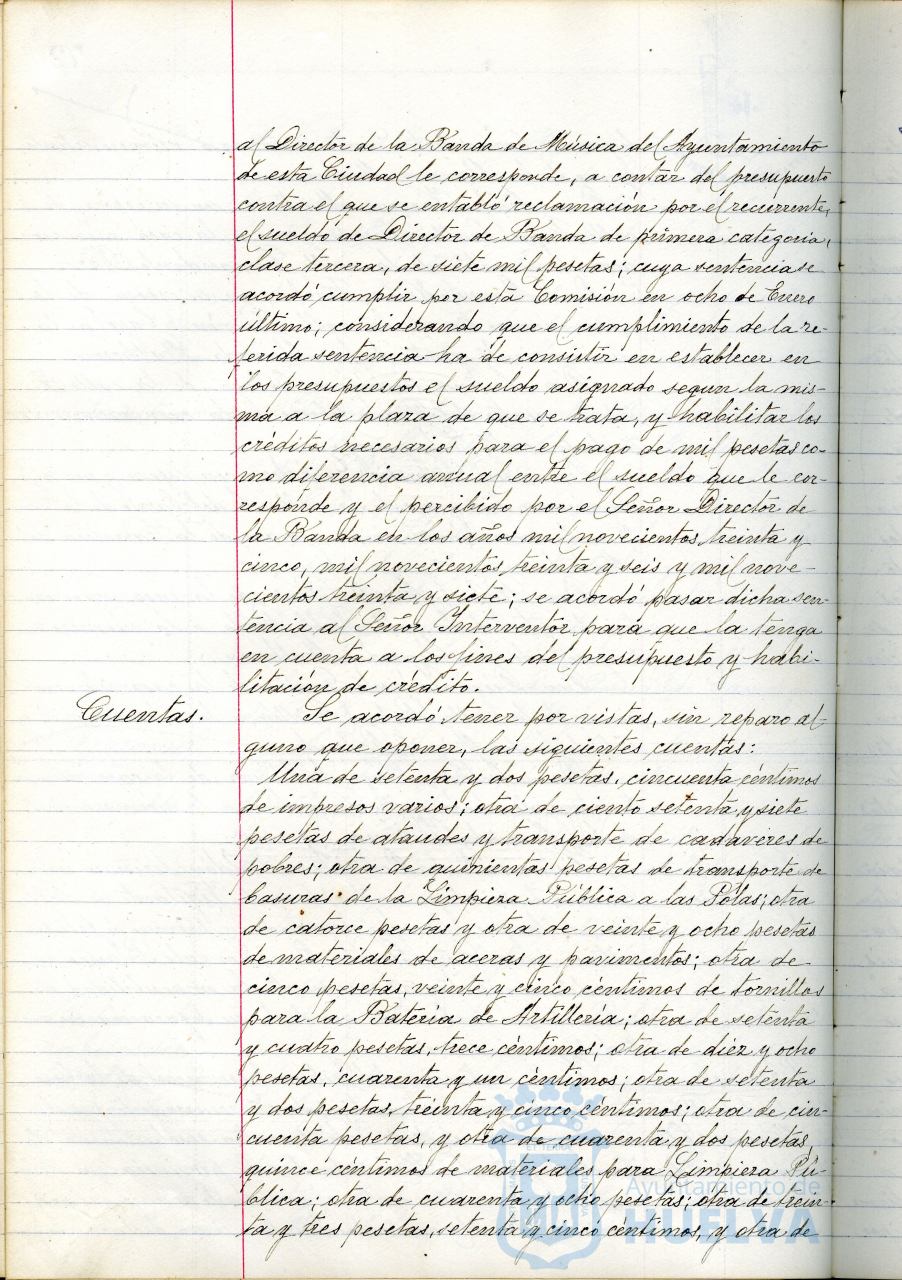 al Director de la Banda de Música del Ayuntamiento
de esta Ciudad le corresponde, a contar del presupuesto
contra el que se entabló reclamación por el recurrente,
el sueldo de Director de Banda de primera categoria,
clase tercera, de siete mil pesetas; cuya sentencia se
acordó cumplir por esta Comisión en ocho de Enero
último; considerando que el cumplimiento de la re-
ferida sentencia ha de consistir en establecer en
los presupuestos el sueldo asignado segun la mis-
ma a la plaza de que se trata, y habilitar los
créditos necesarios para el pago de mil pesetas co-
mo diferencia anual entre el sueldo que le cor-
responde y el percibido por el Señor Director de
la Banda en los años mil novecientos treinta y
cinco, mil novecientos treinta y seis y mil nove-
cientos treinta y siete; se acordó pasar dicha sen-
tencia al Señor Interventor para que la tenga
en cuenta a los fines del presupuesto y habi-
litación de crédito.
Cuentas. Se acordó tener por vistas, sin reparo al-
guno que oponer, las siguientes cuentas:
Una de setenta y dos pesetas, cincuenta céntimos
de impresos varios; otra de ciento setenta y siete
pesetas de ataudes y transporte de cadaveres de
pobres; otra de quinientas pesetas de transporte de
basuras de la Limpieza Pública a las Polas; otra
de catorce pesetas y otra de veinte y ocho pesetas
de materiales de aceras y pavimentos; otra de
cinco pesetas, veinte y cinco centimos de tornillos
para la Bateria de Artilleria; otra de setenta
y cuatro pesetas, trece céntimos; otra de diez y ocho
pesetas, cuarenta y un céntimos; otra de setenta
y dos pesetas, treinta y cinco céntimos; otra de cin-
cuenta pesetas, y otra de cuarenta y dos pesetas,
quince céntimos de materiales para Limpieza Pú-
blica; otra de cuarenta y ocho pesetas; otra de trein-
ta y tres pesetas, setenta y cinco céntimos, y otra de
Ayuntamiento de
HUELVA